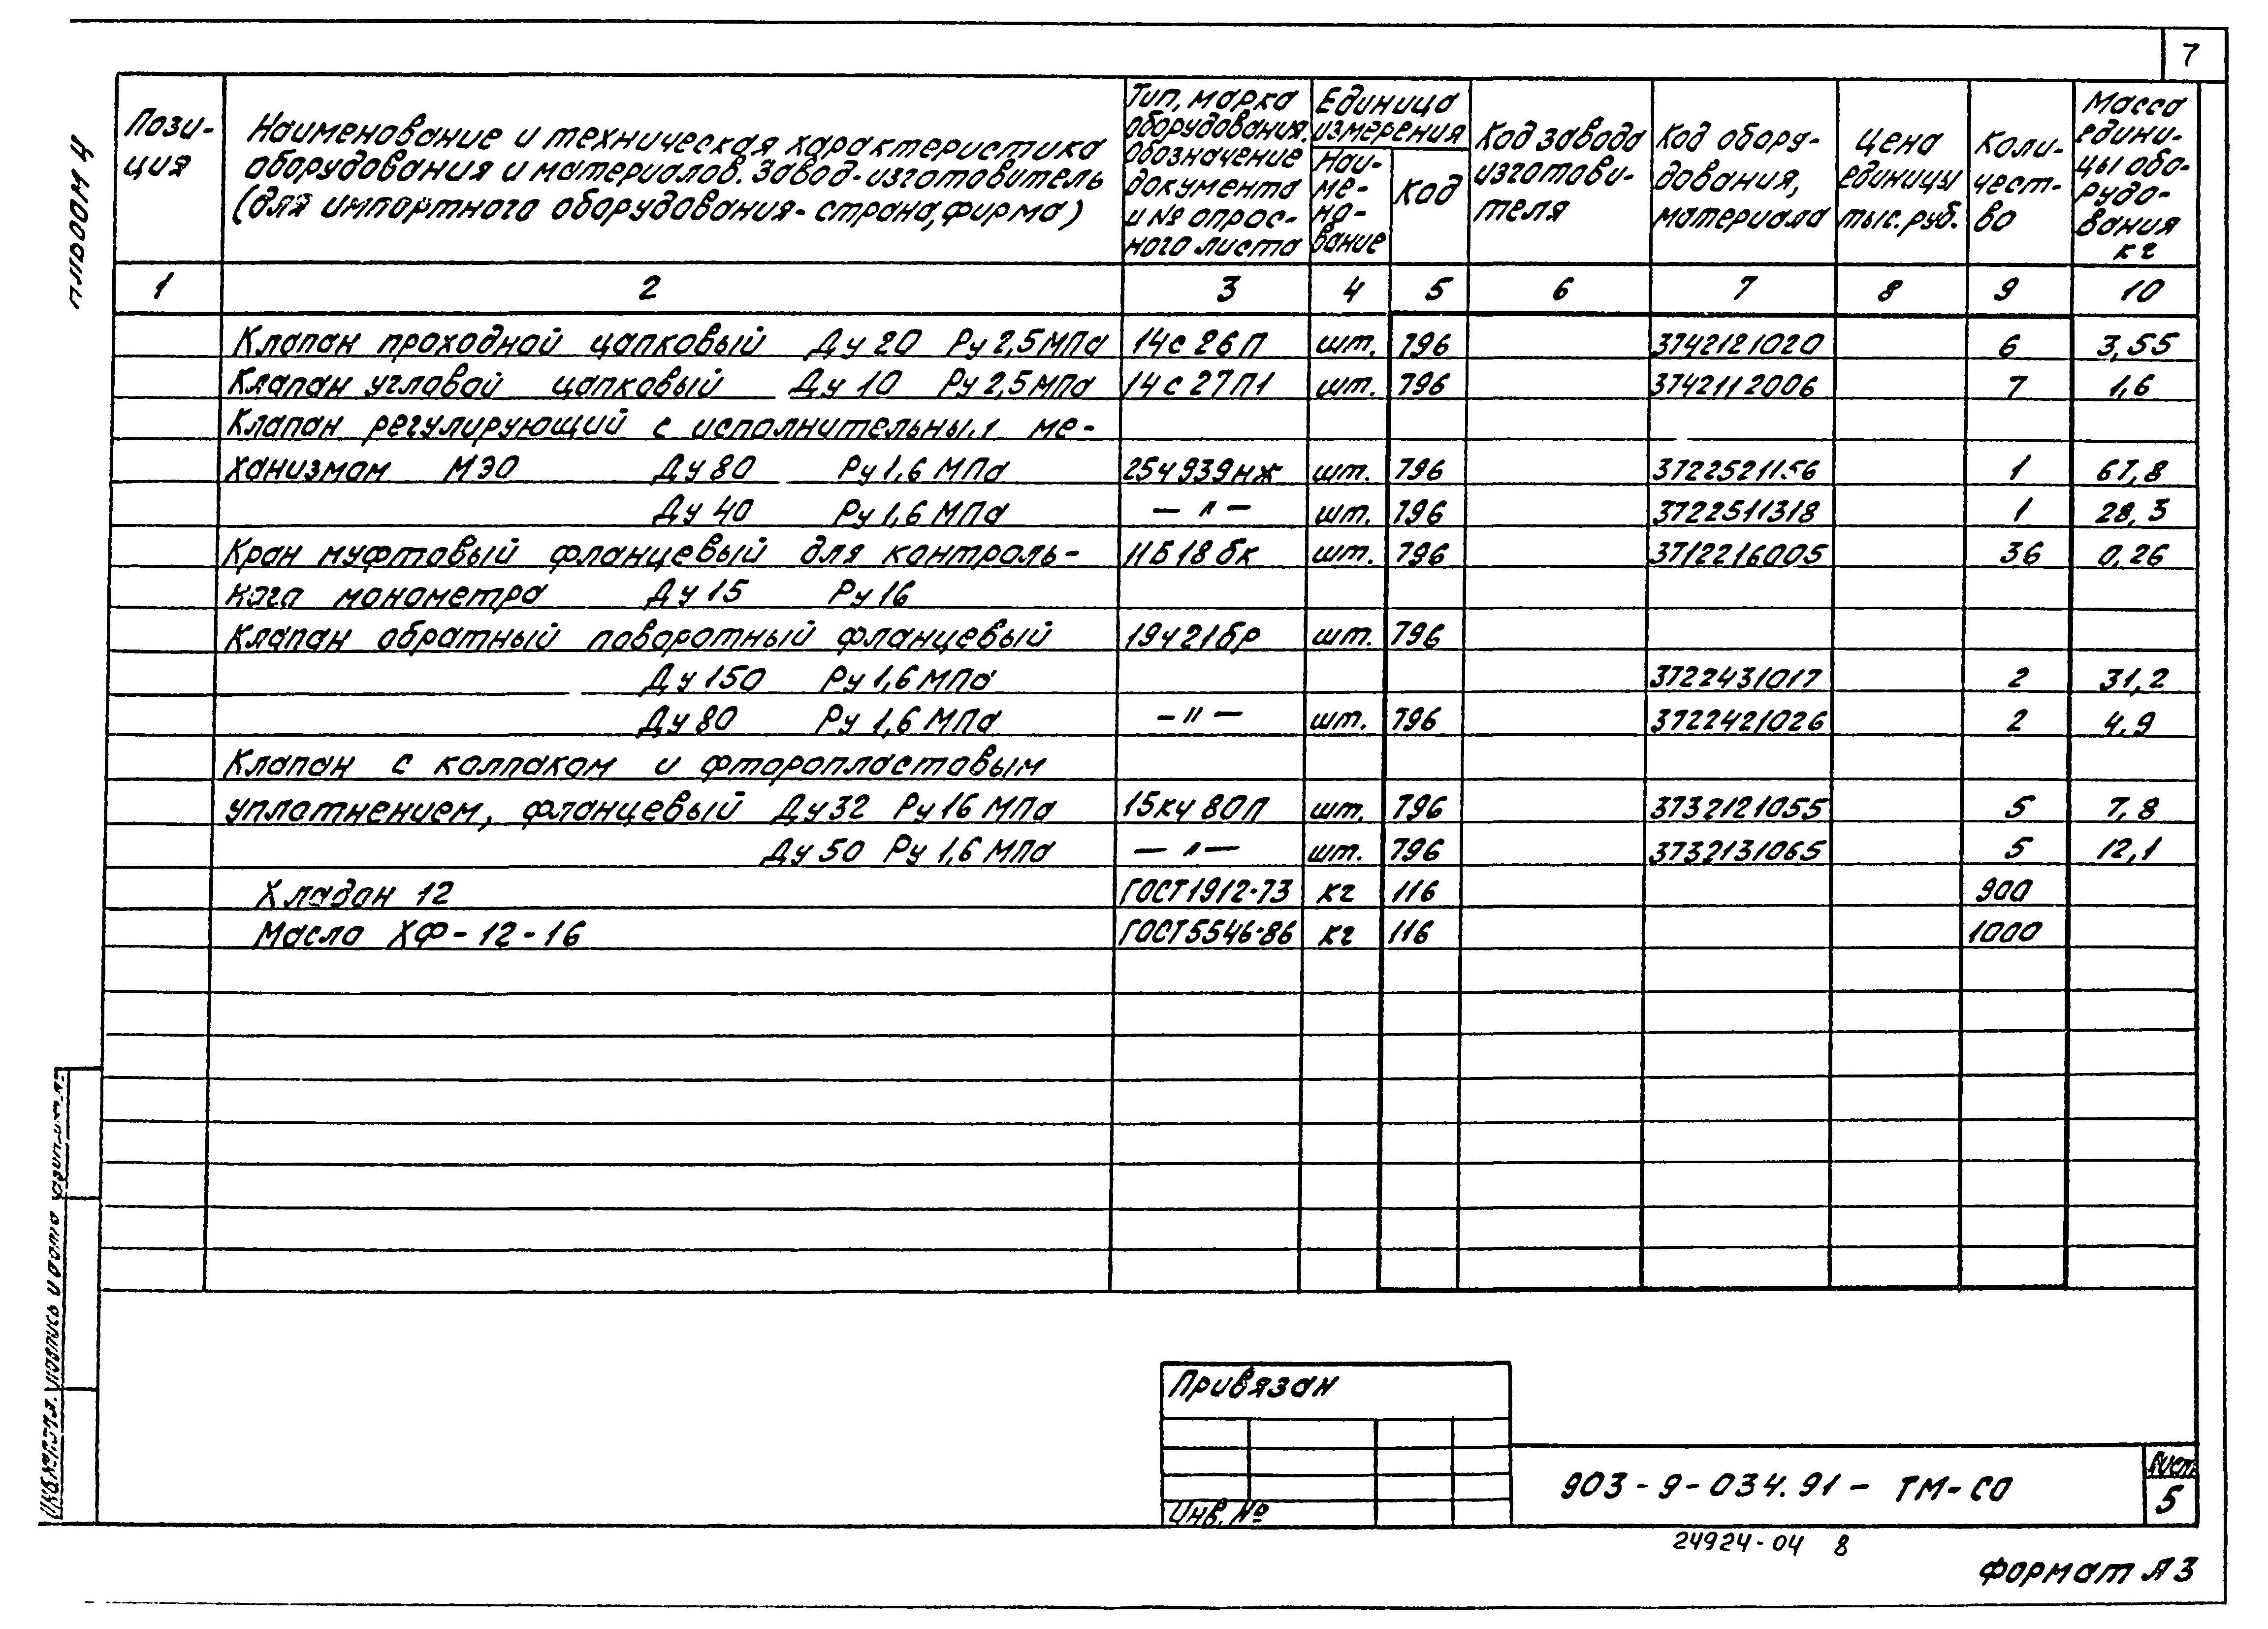 7
Пози-
ция
Наименование и техническая характеристика
оборудования и материалов. Завод-изготовитель
(для импортного оборудования-страна, фирма)
Тип, марка
оборудования.
Обозначение
документа
и № опрос-
ного листа
Единица
измерения
Наи-
ме-
но-
вание
Код
Код завода
изготови-
теля
Код обору-
дования,
материала
Цена
единицы
тыс. руб.
Коли-
чест-
во
Масса
едини-
цы обо-
рудо-
вания
кг
1 2 3 4 5 6 7 8 9 10
Клапан проходной цапковый Ду 20 Ру 2,5 МПа 14с 26П шт. 796 3742121020 6 3,55
Клапан угловой цапковый Ду 10 Ру 2,5 МПа 14с 27П1 шт. 796 3742112006 7 1,6
Клапан регулирующий с исполнительным ме-
ханизмом МЭО Ду 80 Ру 1,6 МПа 25ч939нж шт. 796 3722521156 1 67,8
Ду 40 Ру 1,6 МПа — " — шт. 796 3722511318 1 28,3
Кран муфтовый фланцевый для контроль- 11Б18бк шт. 796 3712216005 36 0,26
ного манометра Ду 15 Ру 16
Клапан обратный поворотный фланцевый 19ч21бр шт. 796
Ду 150 Ру 1,6 МПа 3722431017 2 31,2
Ду 80 Ру 1,6 МПа — " — шт. 796 3722421026 2 4,9
Клапан с колпаком и фторопластовым
уплотнением, фланцевый Ду 32 Ру 16 МПа 15кч 80П шт. 796 3732121055 5 7,8
Ду 50 Ру 1,6 МПа — " — шт. 796 3732131065 5 12,1
Хладон 12 ГОСТ 1912-73 кг 116 900
Масло ХФ-12-16 ГОСТ 5546-86 кг 116 1000
Привязан
Инв. №
903-9-034.91-ТМ-СО
Лист
5
24924-04 8
Формат А3